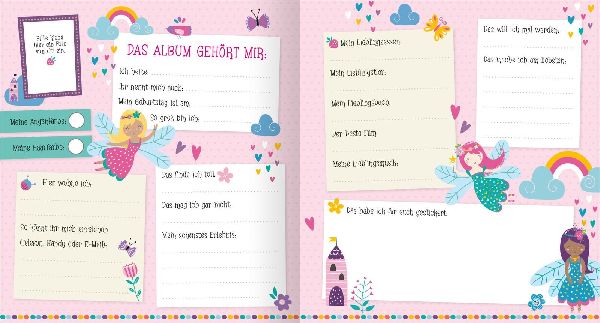 Bitte klebe
hier ein Foto
von dir ein.
DAS ALBUM GEHÖRT MIR:
Ich heiße
Ihr nennt mich auch:
Mein Geburtstag ist am:
So groß bin ich:
Meine Augenfarbe:
Meine Haarfarbe:
Hier wohne ich:
So könnt ihr mich erreichen
(Telefon, Handy oder E-Mail):
Das finde ich toll:
Das mag ich gar nicht:
Mein schönstes Erlebnis:
Mein Lieblingsessen:
Mein Lieblingstier:
Mein Lieblingsbuch:
Der beste Film:
Meine Lieblingsmusik:
Das will ich mal werden:
Das mache ich am liebsten:
Das habe ich für euch gekritzelt: